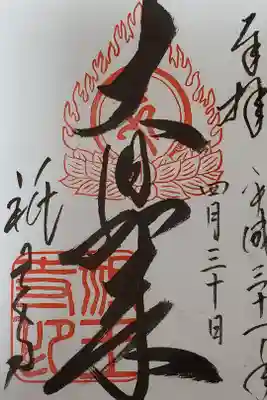 奉拝
平成三十一年
四月三十日
大日如来
祇王寺
祇王
寺印